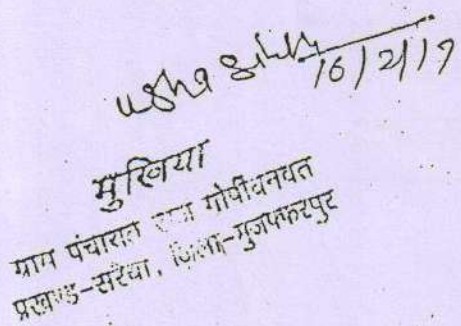 usha sinh
16/2/17
मुखिया
ग्राम पंचायत राज गोपीधनवत
प्रखण्ड-सरैया, जिला-मुजफ्फरपुर